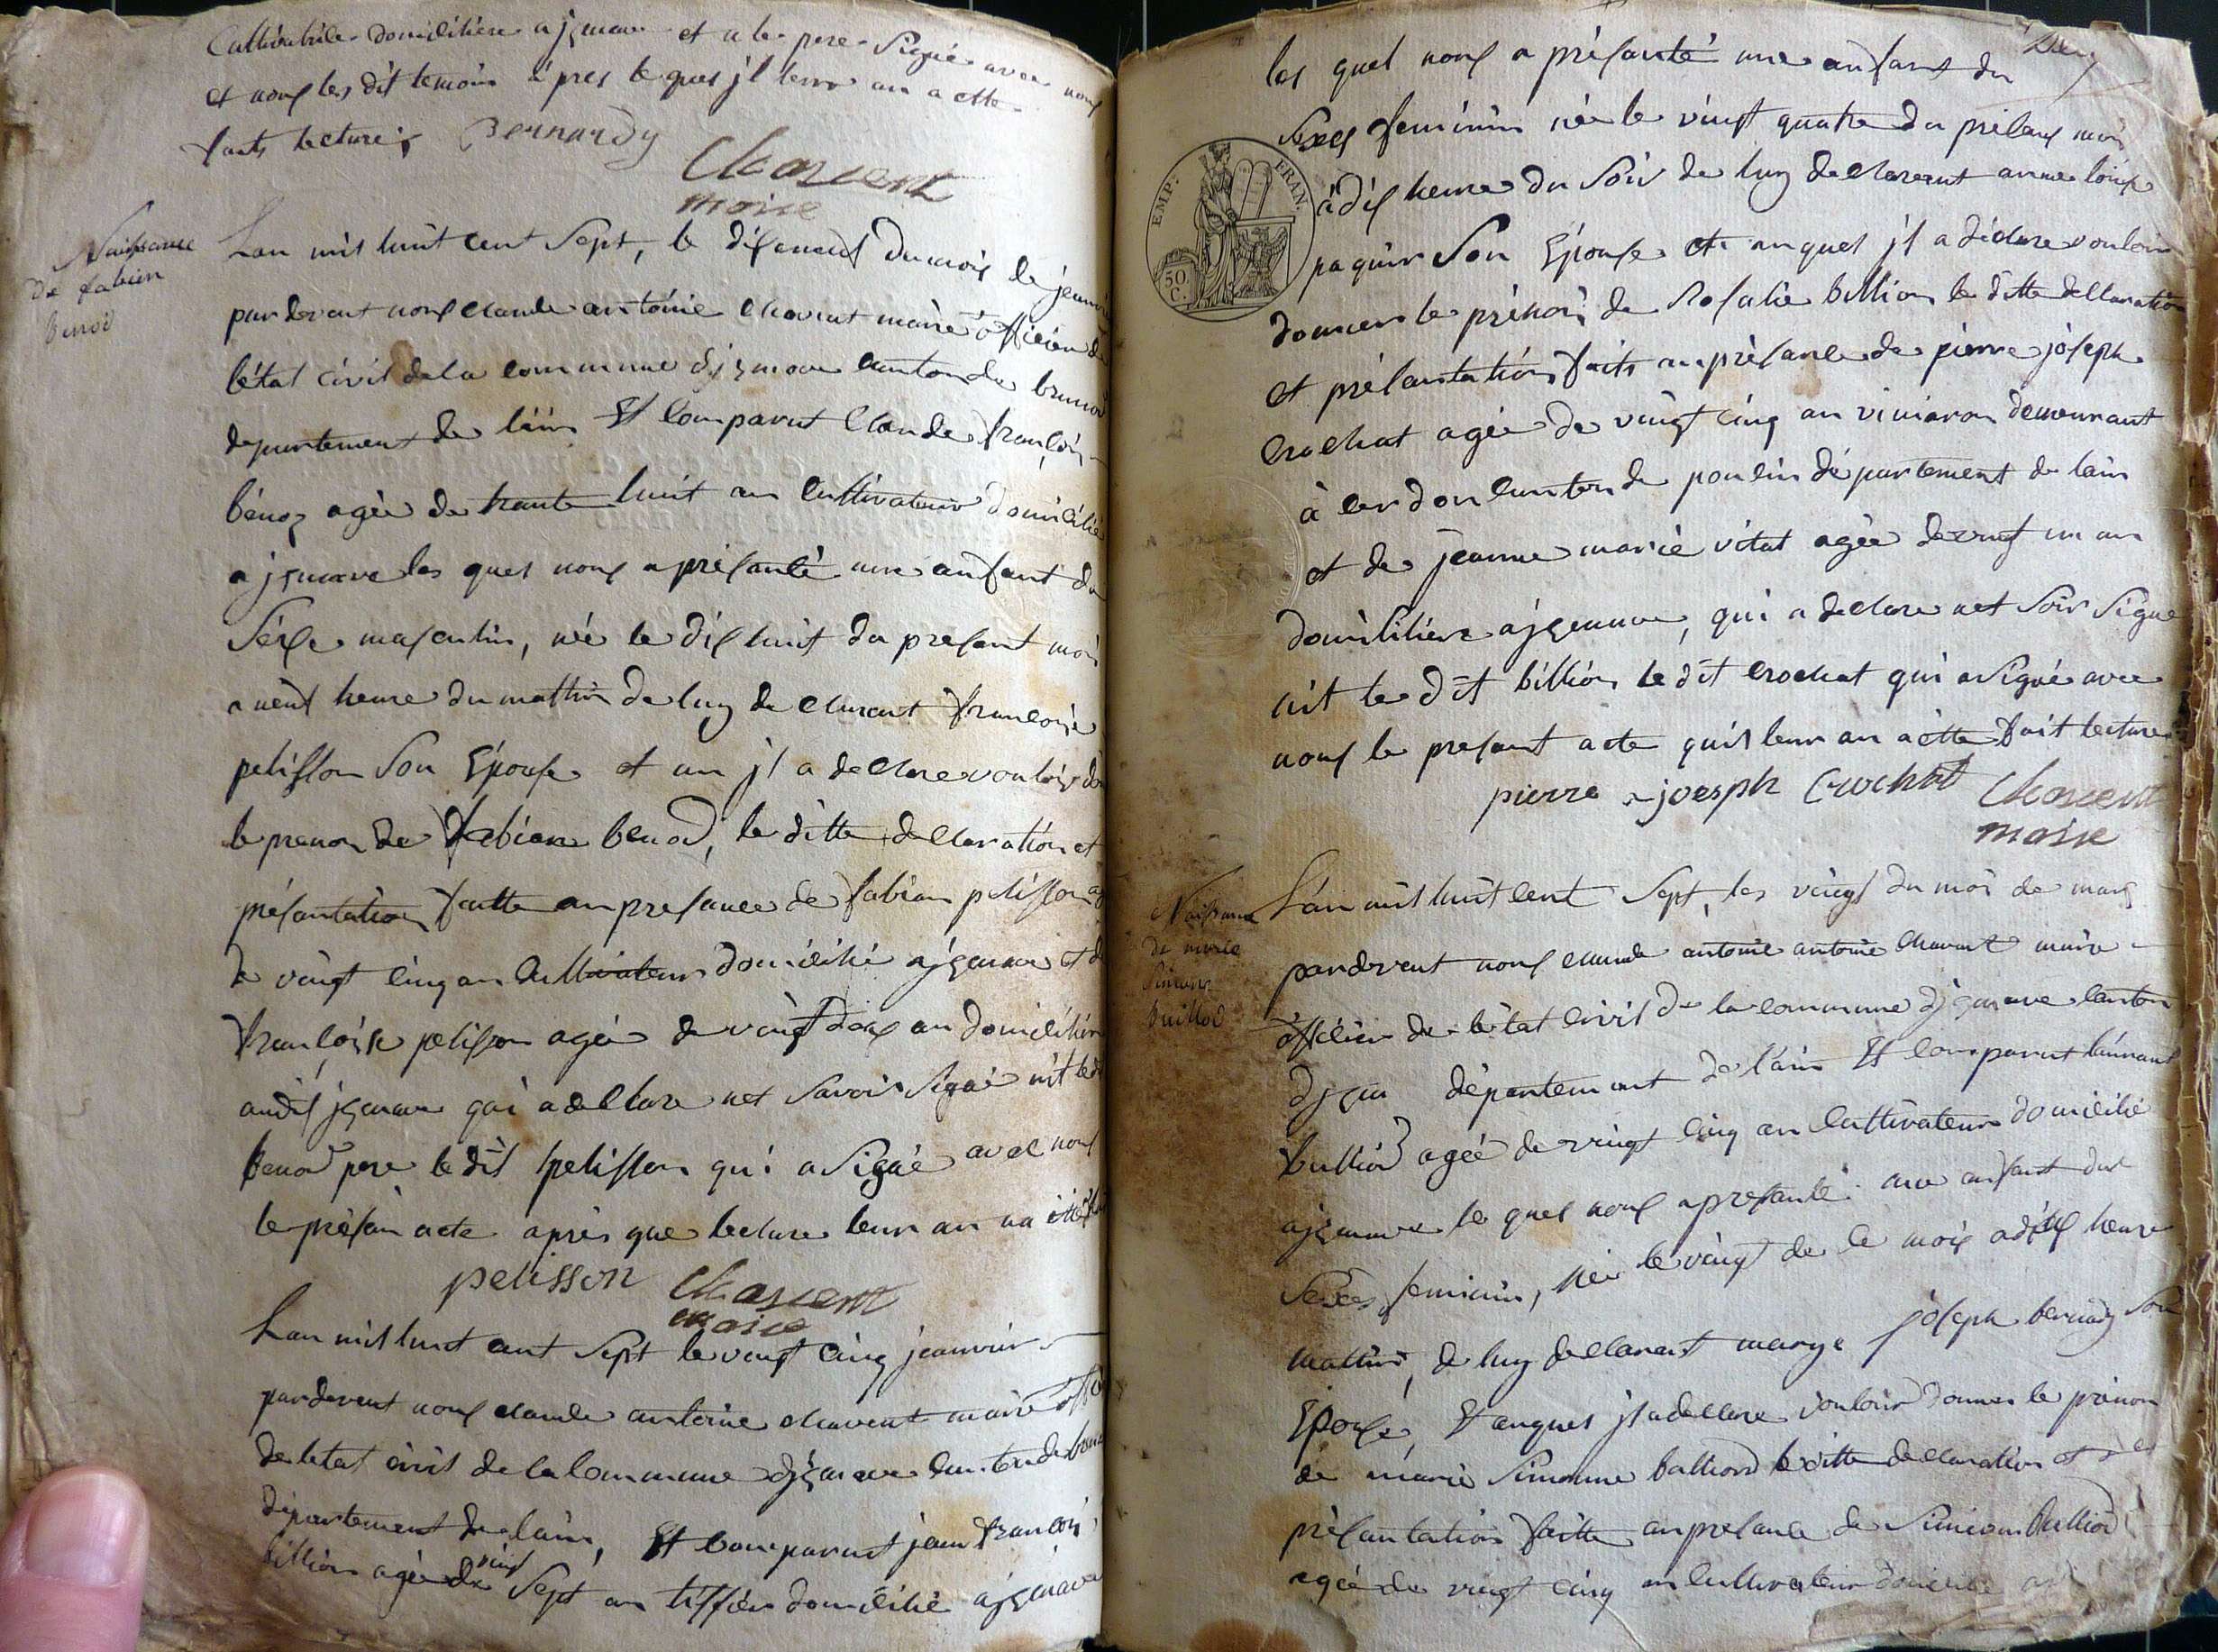 Cultivatrice domicilière a jzernore et a le pere Signé avec nous
et nous les dit temoin apres le ques jl leur an a etté
faits lecture;
Bernardy
Chavent
maire
Naissance
de fabien
benod
Lan mil huit cent Sept, le dixneuf du mois de jeanvier
pardevant nous claude antoine chavent maire officier de
létat civil de la commune djzernore canton de
departement de láin Et Comparut Claude françois
bénoz agée de trante huit an Cultivateur domicilié
a jzernore les ques nous a présanté une anfant du
Séxe masculin, née le dix huit du presant mois
a neuf heure du mattin de luy de clarant françoise
pelisson Son Epouse et an jl a declare vouloir
le prenon de fabien benod, le ditte declaration et
présantation faitte an presance de fabien pelisson
de vingt cinq an Cultivateur domicilié a jzernore et de
françoise pelisson agée de vingt deux an domicilière
audit jzernore qui a declare net Savoir Signé nit le dit
benod pere le dit pelisson qui a Signé avec nous
le présan acte apres que lecture leur an na étté
pelisson Chavent
maire
Lan mil huit cent Sept le vingt cinq jeanvier
pardevent nous claude antoine chavent maire
de letat civil de la Commune djzernore Canton de
département de lain, Et Comparut jean françois
billion agée de vingt Sept an tissier domicilié a jzernore
les quel nous a présanté une anfant du
Sexes feminin née le vingt quatre du présant mois
à dix heure du Soir de luy declarant anne
paquir Son Epouse et an ques jl a déclare vouloir
donner le prénon de Rosalie billion le ditte declaration
et présantation faits an présance de pierre jòseph
Crochat agée de vingt cinq an vinieron demeurant
à Cerdon Canton de poncin département de lain
et de jeanne marie vitat agée de vingt un an
domicilière a jzernore, qui a declare net Soir Signe
nit le dit billion le dit Crochat qui a Signé avec
nous le presant acte quil leur an à etté fait lecture
pierre joesph Crochat Chavent
maire
EMP: FRAN.
50
C.
Naissance
de marie
Simone
bulliod
Lán mil huit cent Sept, les vingt du moi de mars
pardevent nous claude antoine antoine chavent maire
officier de létat civil de la commune djzernore canton
djzer département de lain Et Comparut
bulliod agée de vingt cinq an Cultivateur domicilié
a jzernore le ques nous a presanté une anfant du
Sexes feminin, née le vingt de ce mois a dix heure
mattin, de luy declarant marye joseph bernardy Son
Epouse, Et anques jl a declare vouloir donner le prénon
de marie Simonne bulliod le ditte declaration et
présantation faitte an presance de Simeon bulliod
agée de vingt cinq an Cultivateur domicilié